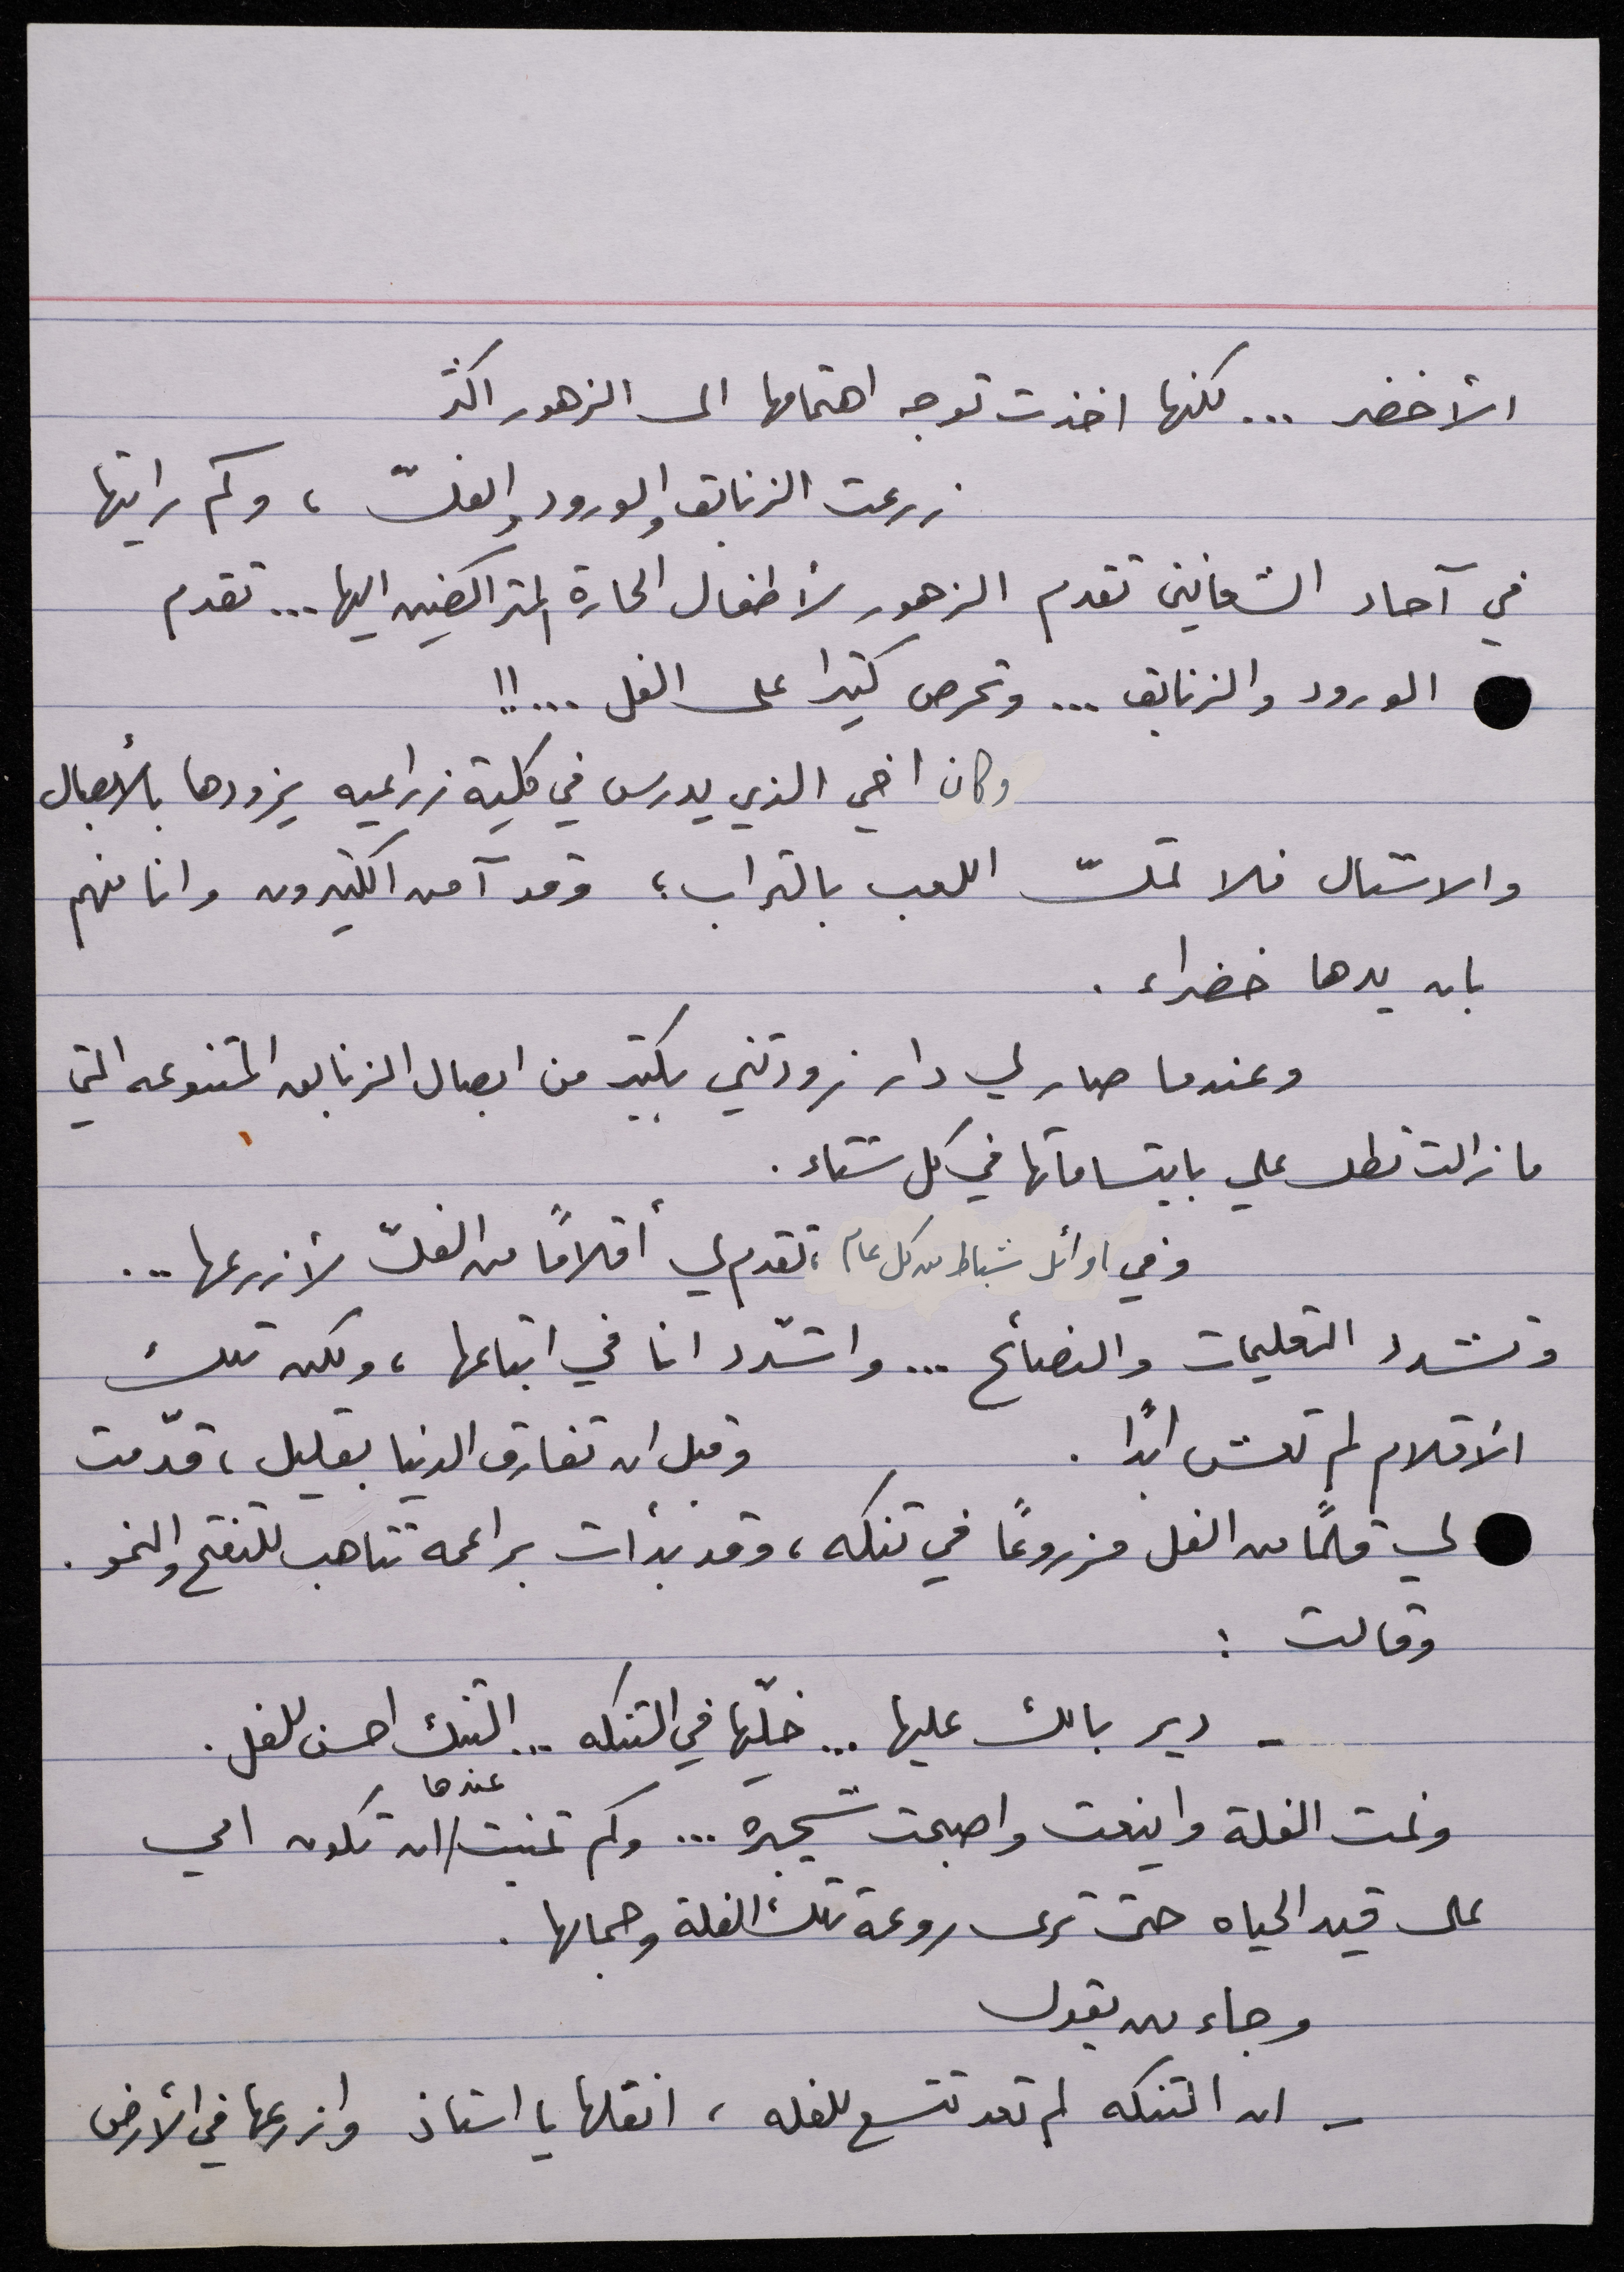 الأخضر ... لكنها اخذت توجه اهتمامها الى الزهور اكثر
زرعت الزنابق والورود والفلّ ، وكم رايتها
في آحاد الشعانين تقدم الزهور لأطفال الحارة المتراكضين اليها ... تقدم
الورود والزنابق ... وتحرص كثيرا على الفل ... !!
وكان اخي الذي يدرس في كلية زراعيه يزودها بالأبصال
والاشتال فلا تملّ اللعب بالتراب ؛ وقد آمن الكثيرون وانا منهم
بان يدها خضراء .
وعندما صار لي دار زودتني بكثير من ابصال الزنابق المتنوعه التي
ما زالت تطل علي بابتساماتها في كل شتاء .
وفي اوائل شباط من كل عام ، تقدم لي أقلامًا من الفلّ لأزرعها ...
وتشدد التعليمات والنصائح ... واتشدّد انا في اتباعها ، ولكن تلك
الأقلام لم تعش ابدًا . وقبل ان تفارق الدنيا بقليل ، قدّمت
لي قلمًا من الفل مزروعًا في تنكه ، وقد بدأت براعمه تتاهب للتفتح والنمو .
وقالت :
- دير بالك عليها ... خلّيها في التنكه ... التنك احسن للفل .
ونمت الفلة واينعت واصبحت شجيره ... وكم تمنيت / عندها ان تكون امي
على قيد الحياه حتى ترى روعة تلك الفلة وجمالها .
وجاء من يقول
- ان التنكه لم تعد تتسع للفله ، انقلها يا استاذ وازرعها في الأرض